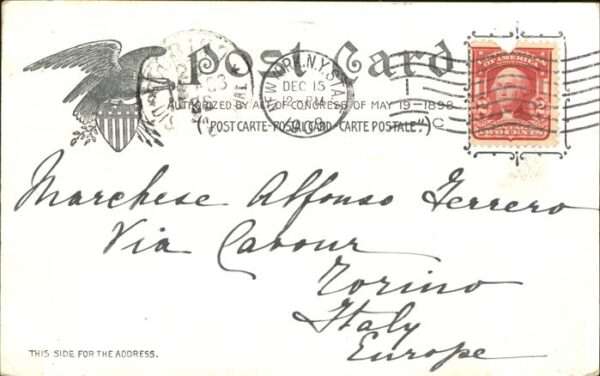 Post Card
AUTHORIZED BY ACT OF CONGRESS OF MAY 19-1898
("POST CARTE-POSTAL CARD-CARTE POSTALE".)
NEW YORK, N.Y. STA.
DEC 15
C
OF AMERICA
TWO CENTS
Marchese Alfonso Ferrero
Via Cavour
Torino
Italy
Europe
THIS SIDE FOR THE ADDRESS.